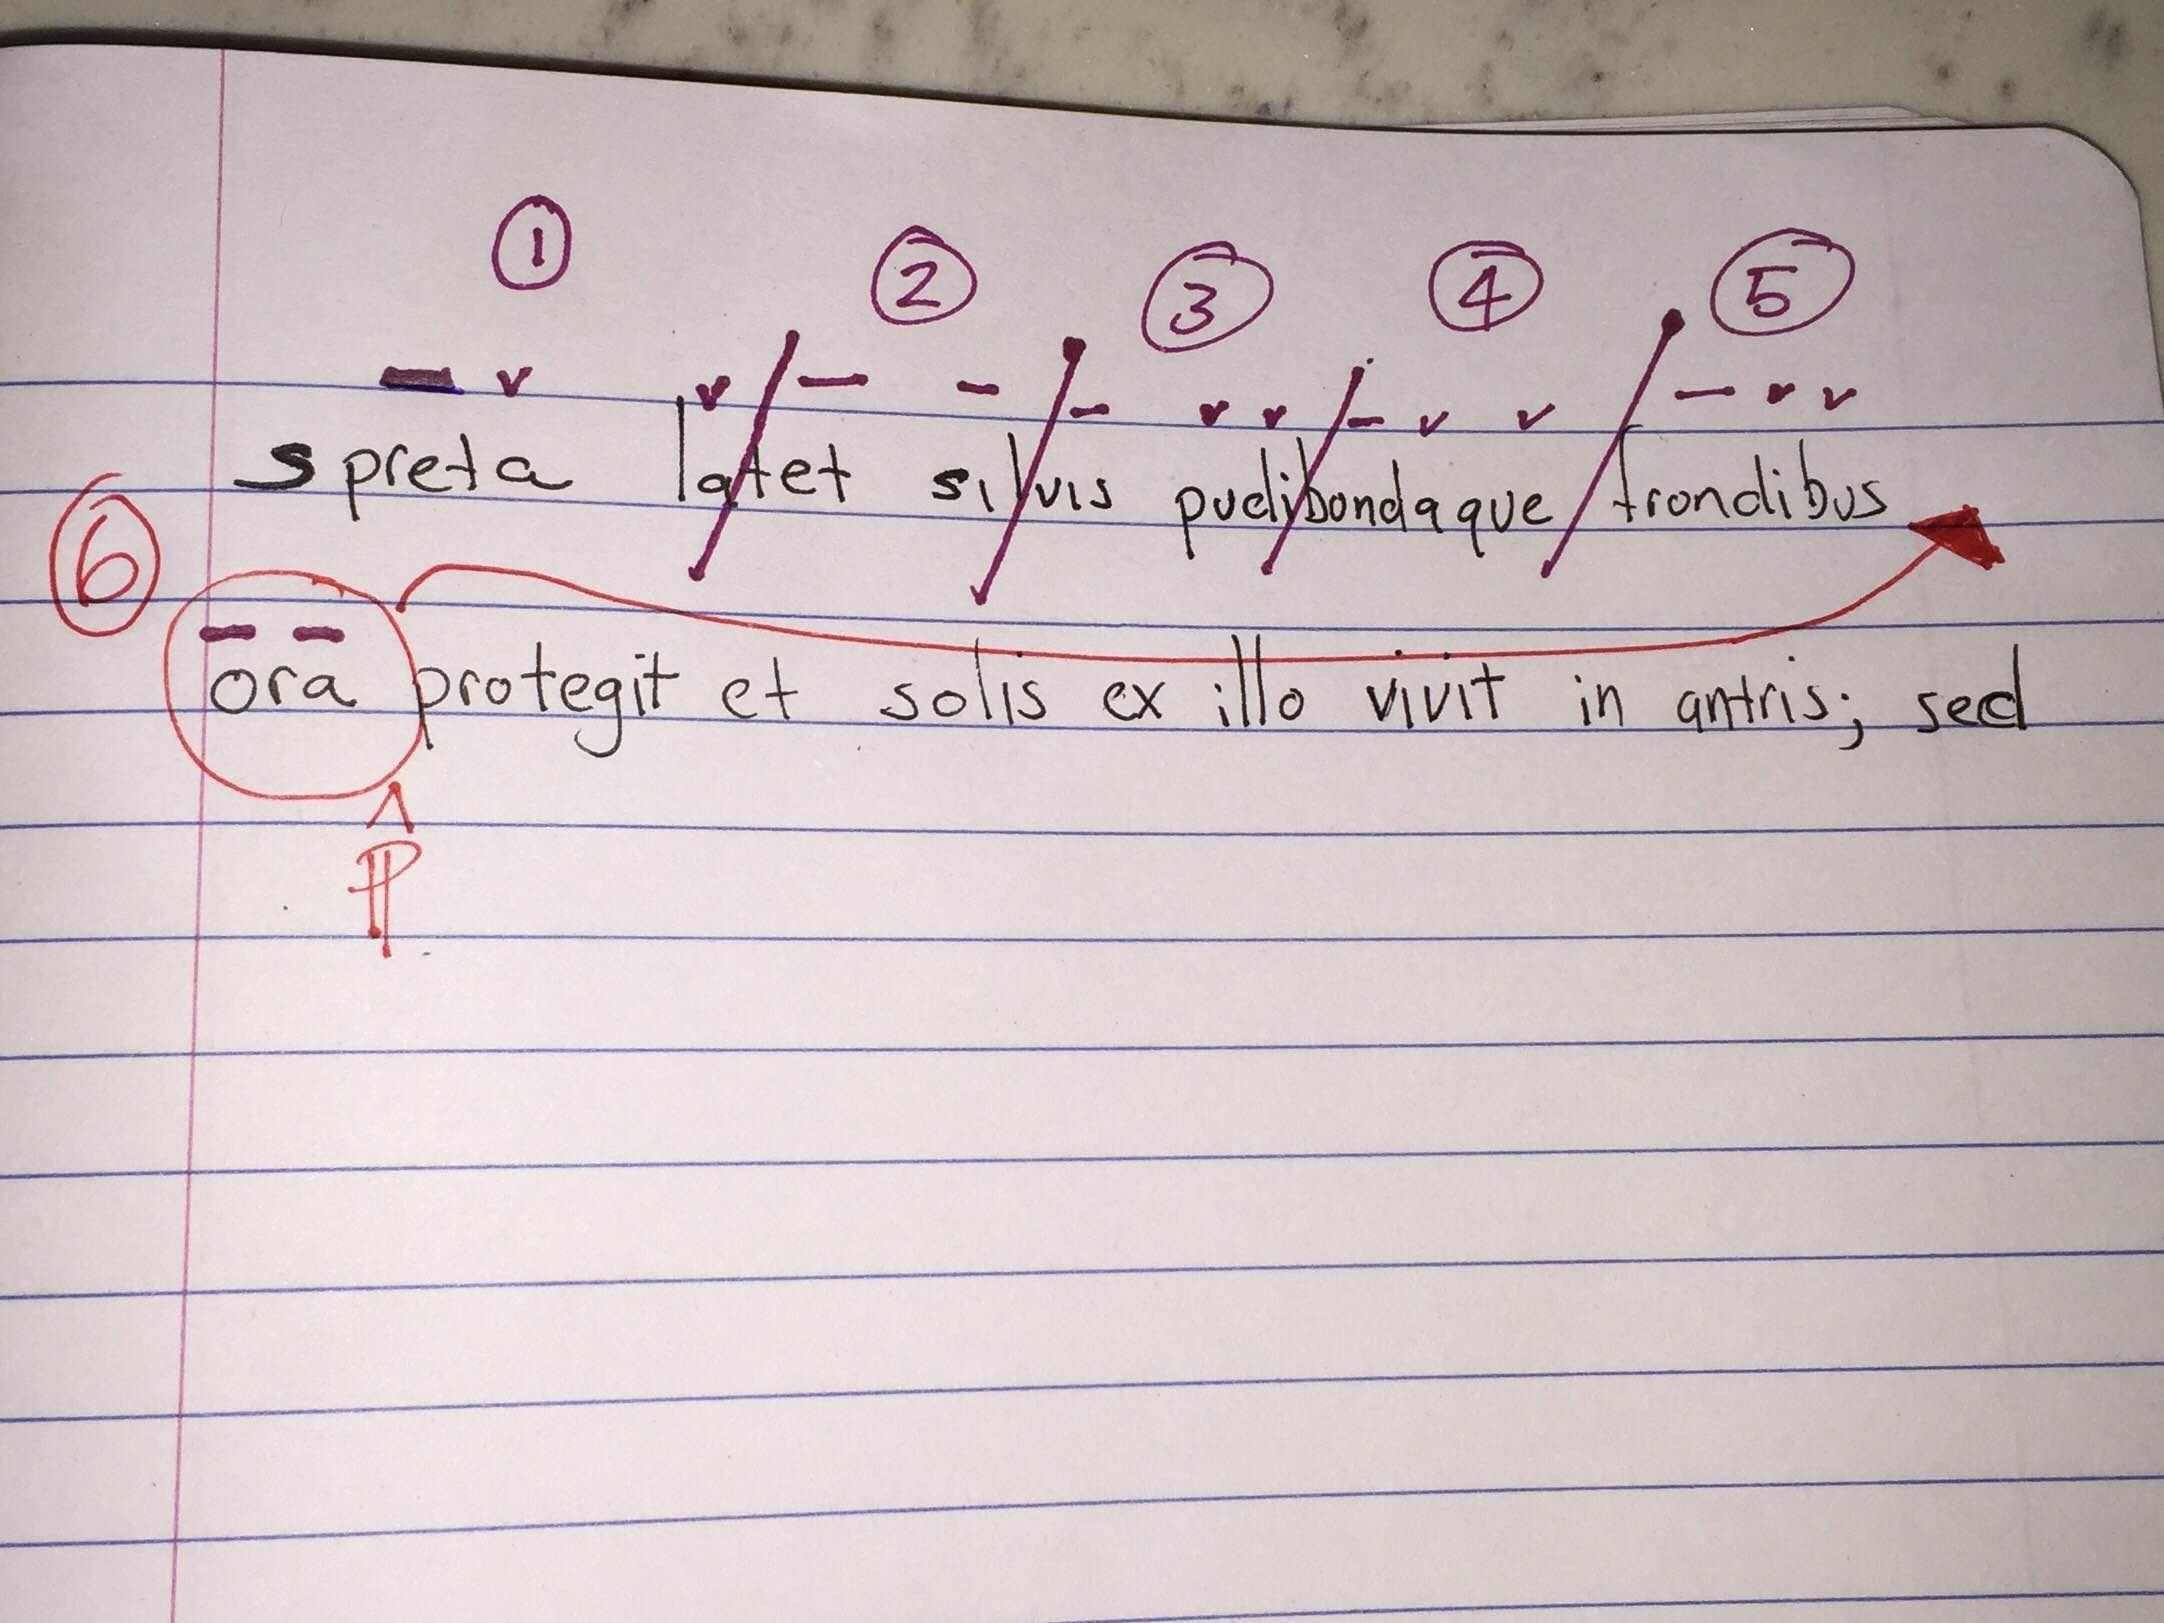 ① ② ③ ④ ⑤
– v v / – – / – v v / – v v / – v v
spreta latet silvis pudibondaque frondibus
⑥
– –
ora protegit et solis ex illo vivit in antris; sed
^